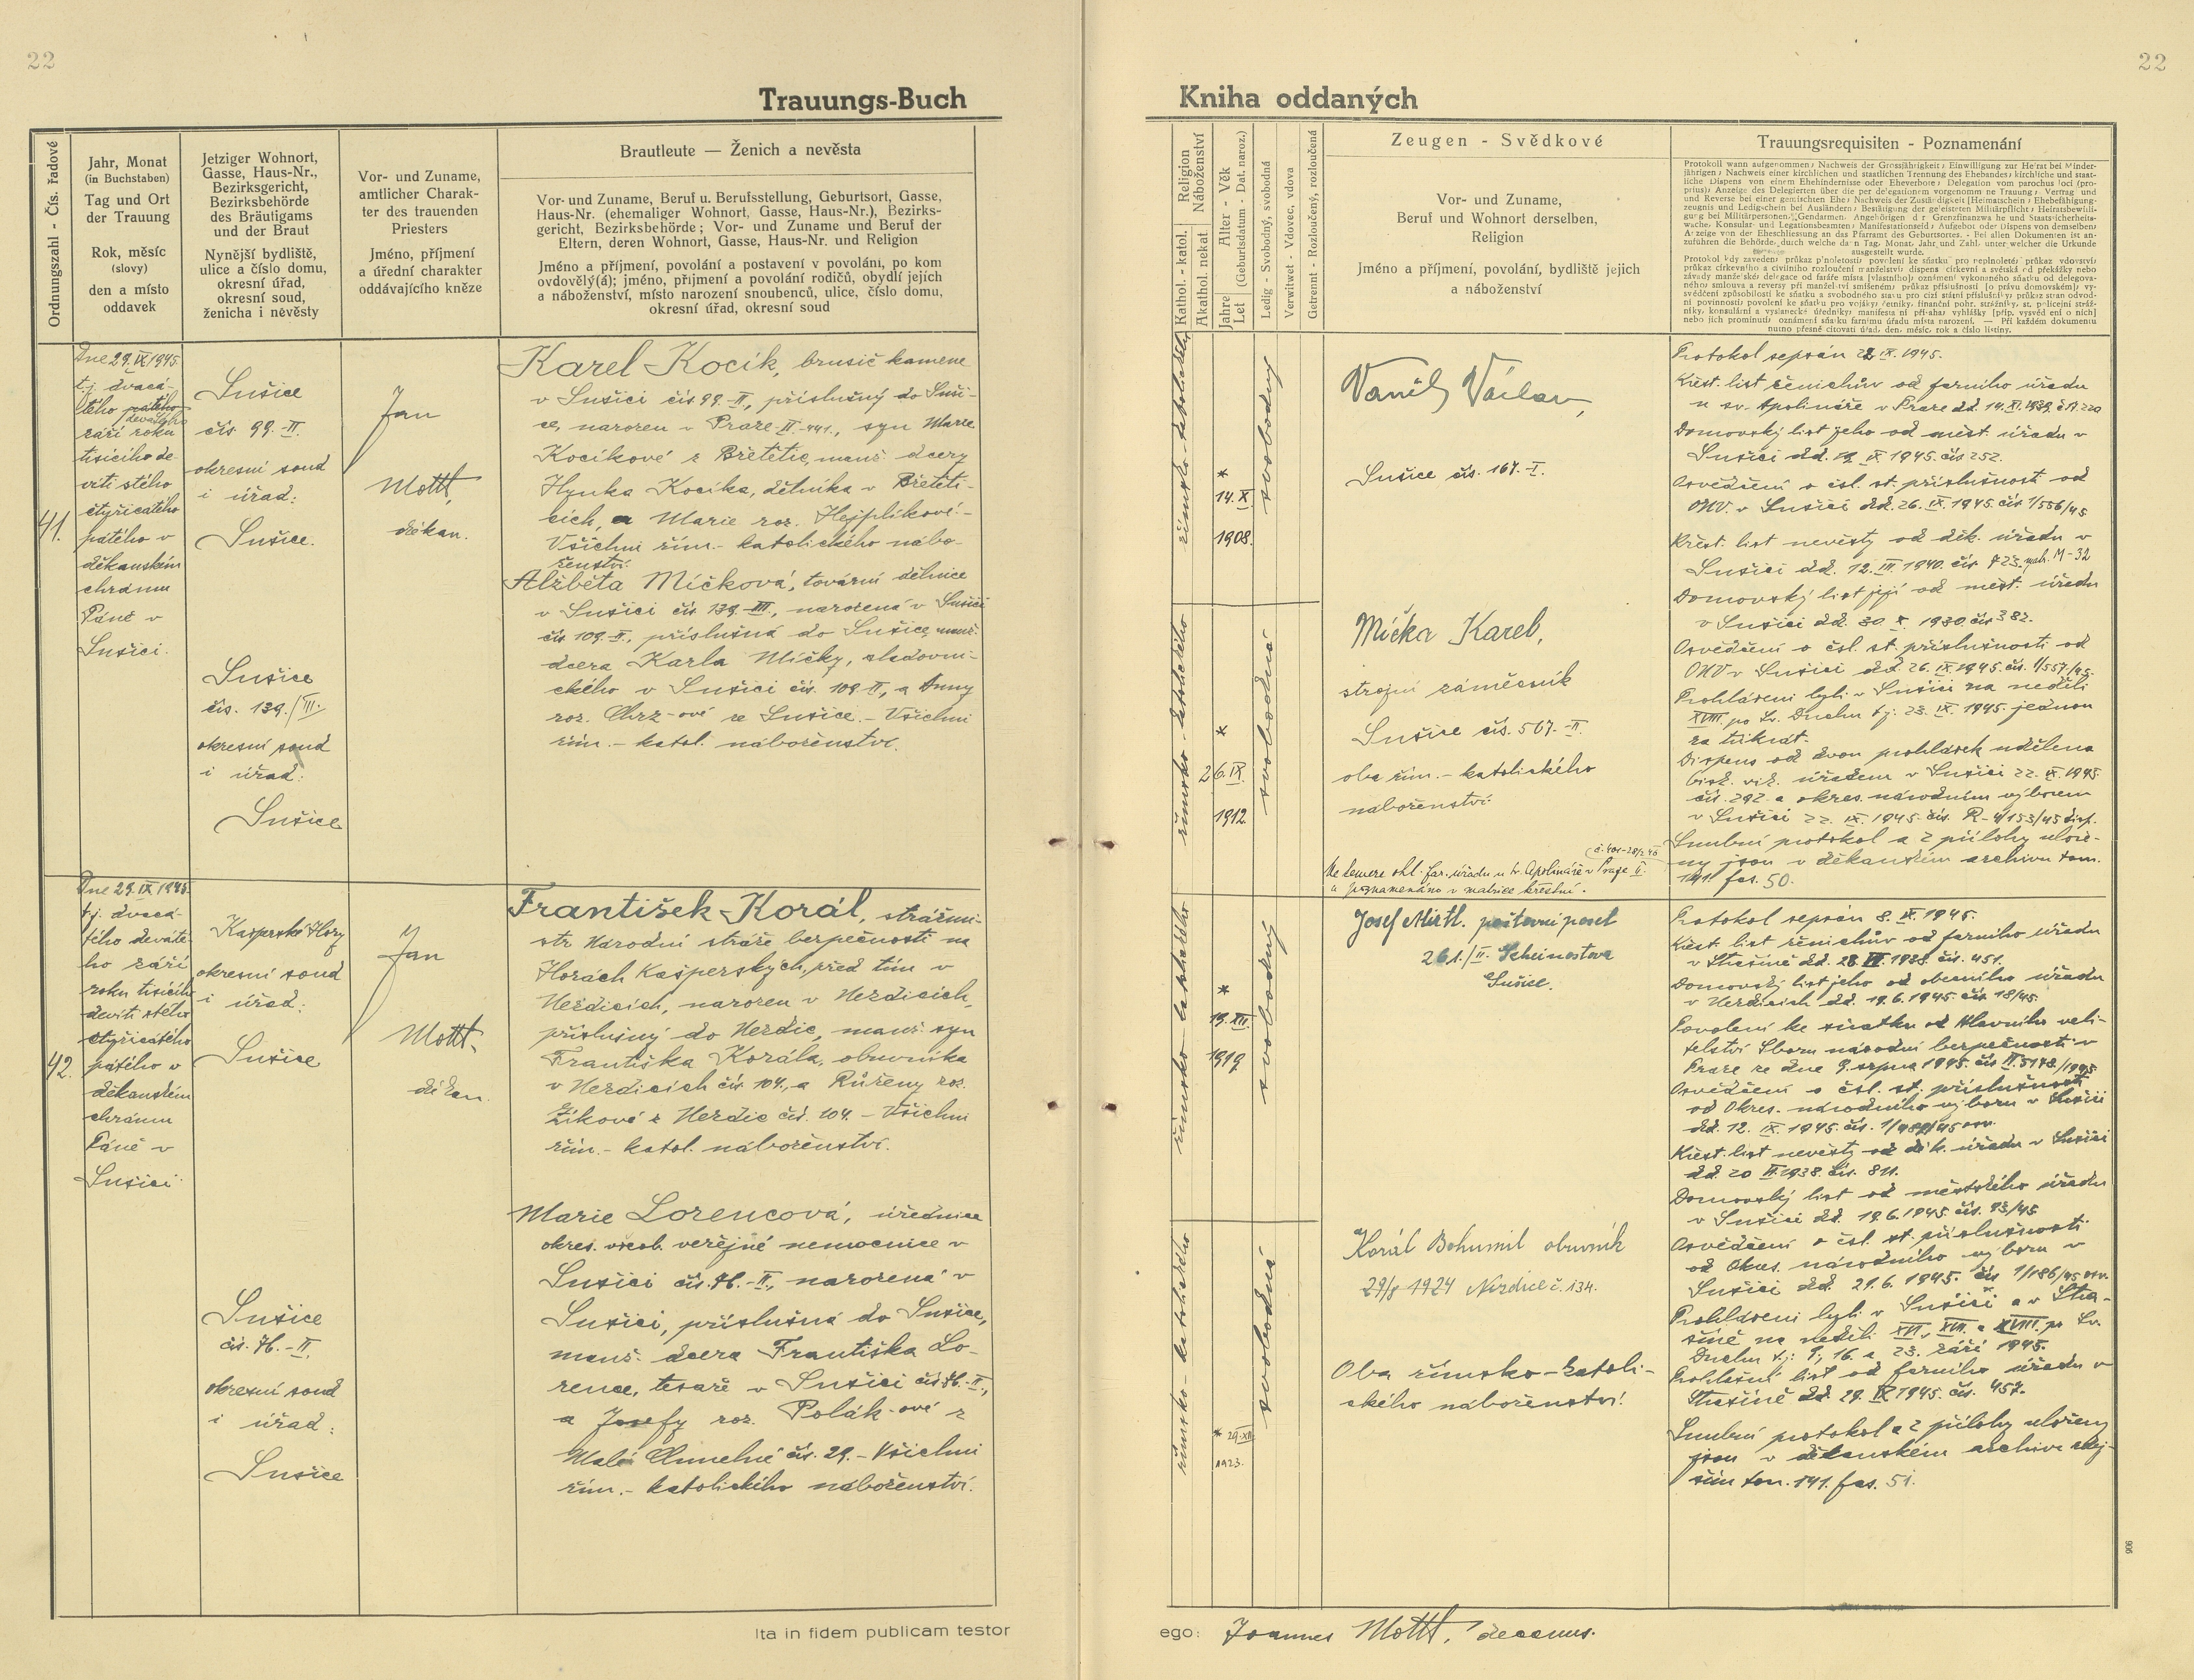 22
Trauungs-Buch
Ordnungszahl - Čís. řadové
Jahr, Monat
(in Buchstaben)
Tag und Ort
der Trauung
Rok, měsíc
(slovy)
den a místo
oddavek
Jetziger Wohnort,
Gasse, Haus-Nr.,
Bezirksgericht,
Bezirksbehörde
des Bräutigams
und der Braut
Nynější bydliště,
ulice a číslo domu,
okresní úřad,
okresní soud,
ženicha i nevěsty
Vor- und Zuname,
amtlicher Charak-
ter des trauenden
Priesters
Jméno, příjmení
a úřední charakter
oddávajícího kněze
Brautleute — Ženich a nevěsta
Vor- und Zuname, Beruf u. Berufsstellung, Geburtsort, Gasse,
Haus-Nr. (ehemaliger Wohnort, Gasse, Haus-Nr.), Bezirks-
gericht, Bezirksbehörde; Vor- und Zuname und Beruf der
Eltern, deren Wohnort, Gasse, Haus-Nr. und Religion
Jméno a příjmení, povolání a postavení v povolání, po kom
ovdověl(á); jméno, přijmení a povolání rodičů, obydlí jejich
a náboženství, místo narození snoubenců, ulice, číslo domu,
okresní úřad, okresní soud
41.
Dne 29. IX 1945.
t.j. dvacá-
tého pátého
devátého
září roku
tisícího de
víti stého
čtyřicátého
pátého v
děkanském
chrámu
Páně v
Sušici.
Sušice
čís. 99.-II.
okresní soud
i úřad:
Sušice.
Sušice
čís. 139./III.
okresní soud
i úřad:
Sušice
Jan
Mottl,
děkan.
Karel Kocík, brusič kamene
v Sušici čís. 99.-II., příslušný do Suši-
ce, narozen v Praze-II-441., syn Marie
Kocíkové z Břetětic, manž. dcery
Hynka Kocíka, dělníka v Břetěti-
cích, a Marie roz. Hejplíkové.-
Všichni řím.- katolického nábo-
ženství.
Alžběta Míčková, tovární dělnice
v Sušici čís 139.-III., narozená v Sušici
čís 109.-II., příslušná do Sušice, manž.
dcera Karla Míčky, sladovni-
ckého v Sušici čís. 109.-II., a Anny
roz. Chrz-ové ze Sušice.- Všichni
řím.- katol. náboženství.
42.
Dne 29. IX 1945.
t.j. dvacá-
tého deváté-
ho září
roku tisícího
devíti stého
čtyřicátého
pátého v
děkanském
chrámu
Páně v
Sušici.
Kašperské Hory
okresní soud
i úřad:
Sušice
Sušice
čís. 76.-II.
okresní soud
i úřad:
Sušice
Jan
Mottl,
děkan.
František Korál, strážmi-
str Národní stráže bezpečnosti na
Horách Kašperských, před tím v
Nezdicích, narozen v Nezdicích,
příslušný do Nezdic, manž. syn
Františka Korála, obuvníka
v Nezdicích čís. 104., a Růženy roz.
Zíkové z Nezdic čís. 104. - Všichni
řím.- katol. náboženství.
Marie Lorencová, úřednice
okres. všeob. veřejné nemocnice v
Sušici čís. 76.-II., narozená v
Sušici, příslušná do Sušice,
manž. dcera Františka Lo-
rence, tesaře v Sušici čís 76.-II.,
a Josefy roz. Polák-ové z
Malé Chmelné čís. 29.- Všichni
řím.- katolického náboženství.
Ita in fidem publicam testor
22
Kniha oddaných
Religion
Náboženství
Kathol. - katol.
Akathol. nekat.
Alter - Věk
(Geburtsdatum - Dat. naroz.)
Jahre
Let
Ledig - Svobodný, svobodná
Verwitwet - Vdovec, vdova
Getrennt - Rozloučený, rozloučená
Zeugen - Svědkové
Vor- und Zuname,
Beruf und Wohnort derselben,
Religion
Jméno a příjmení, povolání, bydliště jejich
a náboženství
Trauungsrequisiten - Poznamenání
římsko-katolického
*
14. X.
1908.
svobodný
římsko-katolického
*
26. IX.
1912.
svobodná
Vaněk Václav,
Sušice čís. 167.-I.
Míčka Karel,
strojní zámečník
Sušice čís. 567.-II.
oba řím.- katolického
náboženství.
č. 401-28/2 46
Ve temere obl. far. úřadu u sv. Apolináře v Praze II.
a poznamenáno v matrice křestní.
Protokol sepsán 22. IX. 1945.
Křest. list ženichův od farního úřadu
u sv. Apolináře v Praze dd. 14. XI. 1939.
Domovský list jeho od měst. úřadu v
Sušici dd. 19. IX. 1945. čís 252.
Osvědčení o čsl. st. příslušnosti od
ONV. v Sušici dd. 26. IX. 1945. čís 1/556/45
Křest. list nevěsty od děk. úřadu v
Sušici dd. 12. III. 1940. čís 723. mat. M-32
Domovský list její od měst. úřadu
v Sušici dd. 30. X. 1930. čís 382.
Osvědčení o čsl. st. příslušnosti od
ONV v Sušici dd. 26. IX 1945. čís. 1/557/45.
Prohlášeni byli v Sušici na neděli
XVIII. po Sv. Duchu t.j. 23. IX. 1945. jednou
za třikrát.
Dispens od dvou prohlášek udělena
bisk. vik. úřadem v Sušici 22. IX. 1945
čís. 292. a okres. národním výborem
v Sušici 22. IX. 1945. čís. R-4/153/45 disp.
Snubní protokol a 2 přílohy ulože-
ny jsou v děkanském archivu tom.
141. fas. 50.
římsko-katolického
*
19. XII.
1919
svobodný
římsko-katolického
* 29. XII.
1923.
svobodná
Josef Mirtl. poštovní posel
261./II. Scheinostova
Sušice.
Korál Bohumil obuvník
29/8 1924 Nezdice č. 134.
Oba římsko-katoli-
ckého náboženství!
Protokol sepsán 8. IX. 1945.
Křest. list ženichův od farního úřadu
v Strašíně dd. 28. 1938. čís. 451.
Domovský list jeho od obecního úřadu
v Nezdicích dd. 19. 6. 1945. čís 18/45.
Povolení ke sňatku od Hlavního veli-
telství Sboru národní bezpečnosti v
Praze ze dne 9. srpna 1945. čís
Osvědčení o čsl. st. příslušnosti
od Okres. národního výboru v Sušici
dd. 12. IX. 1945. čís.
Křest. list nevěsty od děk. úřadu v Sušici
dd. 20 1938 čís. 811.
Domovský list od městského úřadu
v Sušici dd. 19. 6. 1945. čís. 93/45
Osvědčení o čsl. st. příslušnosti
od Okres. národního výboru v
Sušici dd. 21. 6. 1945. čís 1/186/45
Prohlášeni byli v Sušici a v Stra-
šíně na neděli XVI., XVII. a XVIII. po Sv.
Duchu t.j.: 9., 16. a 23. září 1945.
Prohlášní list od farního úřadu v
Strašíně dd. 29. IX 1945. čís. 457.
Snubní protokol a 2 přílohy uloženy
jsou v děkanském archivu zdej-
ším tom. 141. fas. 51.
906
ego: Joannes Mottl, decanus.